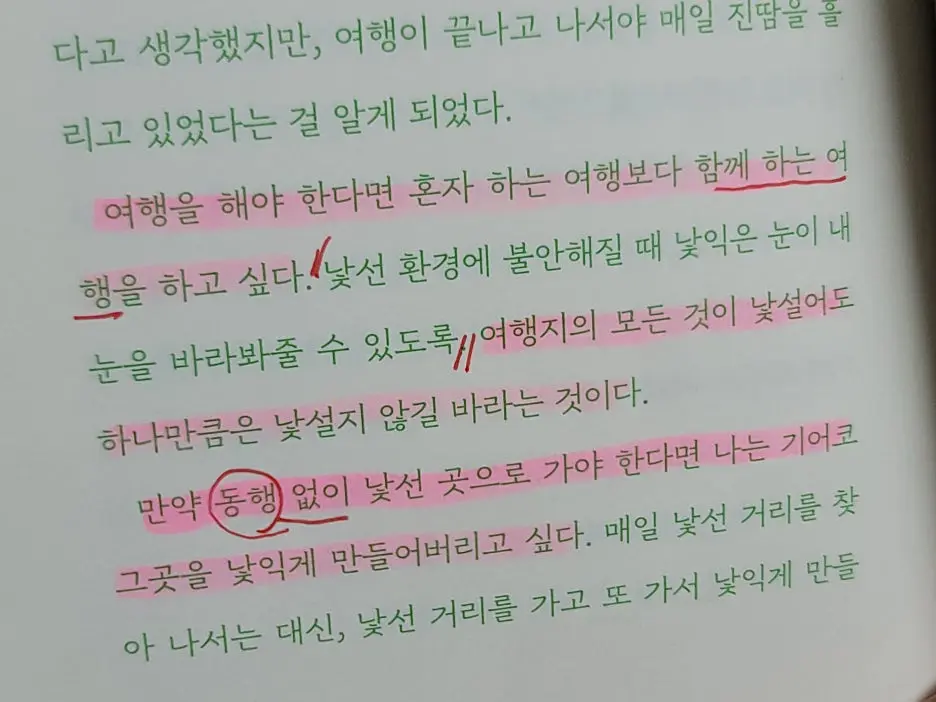 다고 생각했지만, 여행이 끝나고 나서야 매일 진땀을 흘
리고 있었다는 걸 알게 되었다.
여행을 해야 한다면 혼자 하는 여행보다 함께 하는 여
행을 하고 싶다. 낯선 환경에 불안해질 때 낯익은 눈이 내
눈을 바라봐줄 수 있도록. 여행지의 모든 것이 낯설어도
하나만큼은 낯설지 않길 바라는 것이다.
만약 동행 없이 낯선 곳으로 가야 한다면 나는 기어코
그곳을 낯익게 만들어버리고 싶다. 매일 낯선 거리를 찾
아 나서는 대신, 낯선 거리를 가고 또 가서 낯익게 만들